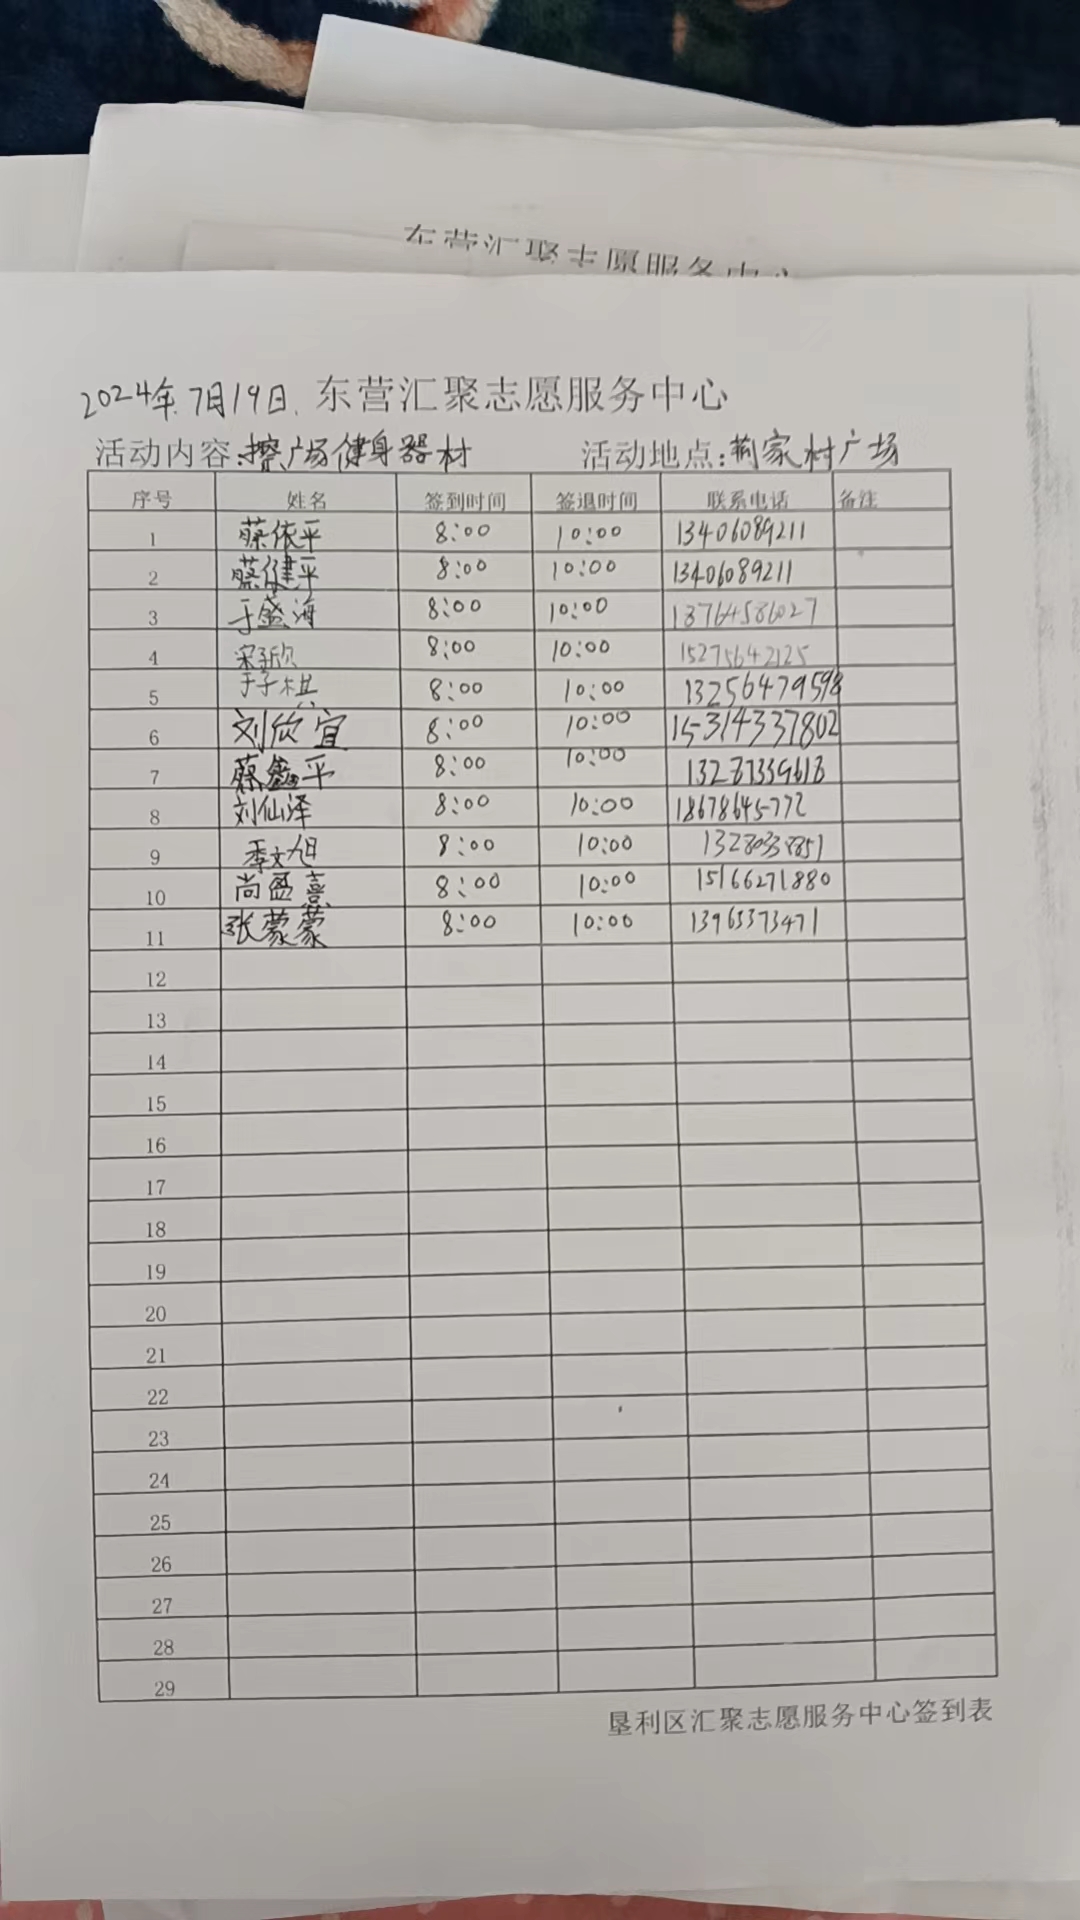 东营汇聚志愿服务中心
2024年7月19日. 东营汇聚志愿服务中心
活动内容:擦广场健身器材 活动地点:荆家村广场
序号 姓名 签到时间 签退时间 联系电话 备注
1 蔡依平 8:00 10:00 13406089211
2 蔡健平 8:00 10:00 13406089211
3 于盛海 8:00 10:00 13764586027
4 宋欣 8:00 10:00 15275642125
5 于子棋 8:00 10:00 13256479598
6 刘欣宜 8:00 10:00 15314337802
7 蔡鑫平 8:00 10:00
8 刘仙泽 8:00 10:00 18678645772
9 季文旭 8:00 10:00
10 尚盈熹 8:00 10:00 15166271880
11 张蒙蒙 8:00 10:00 13963373471
12
13
14
15
16
17
18
19
20
21
22
23
24
25
26
27
28
29
垦利区汇聚志愿服务中心签到表